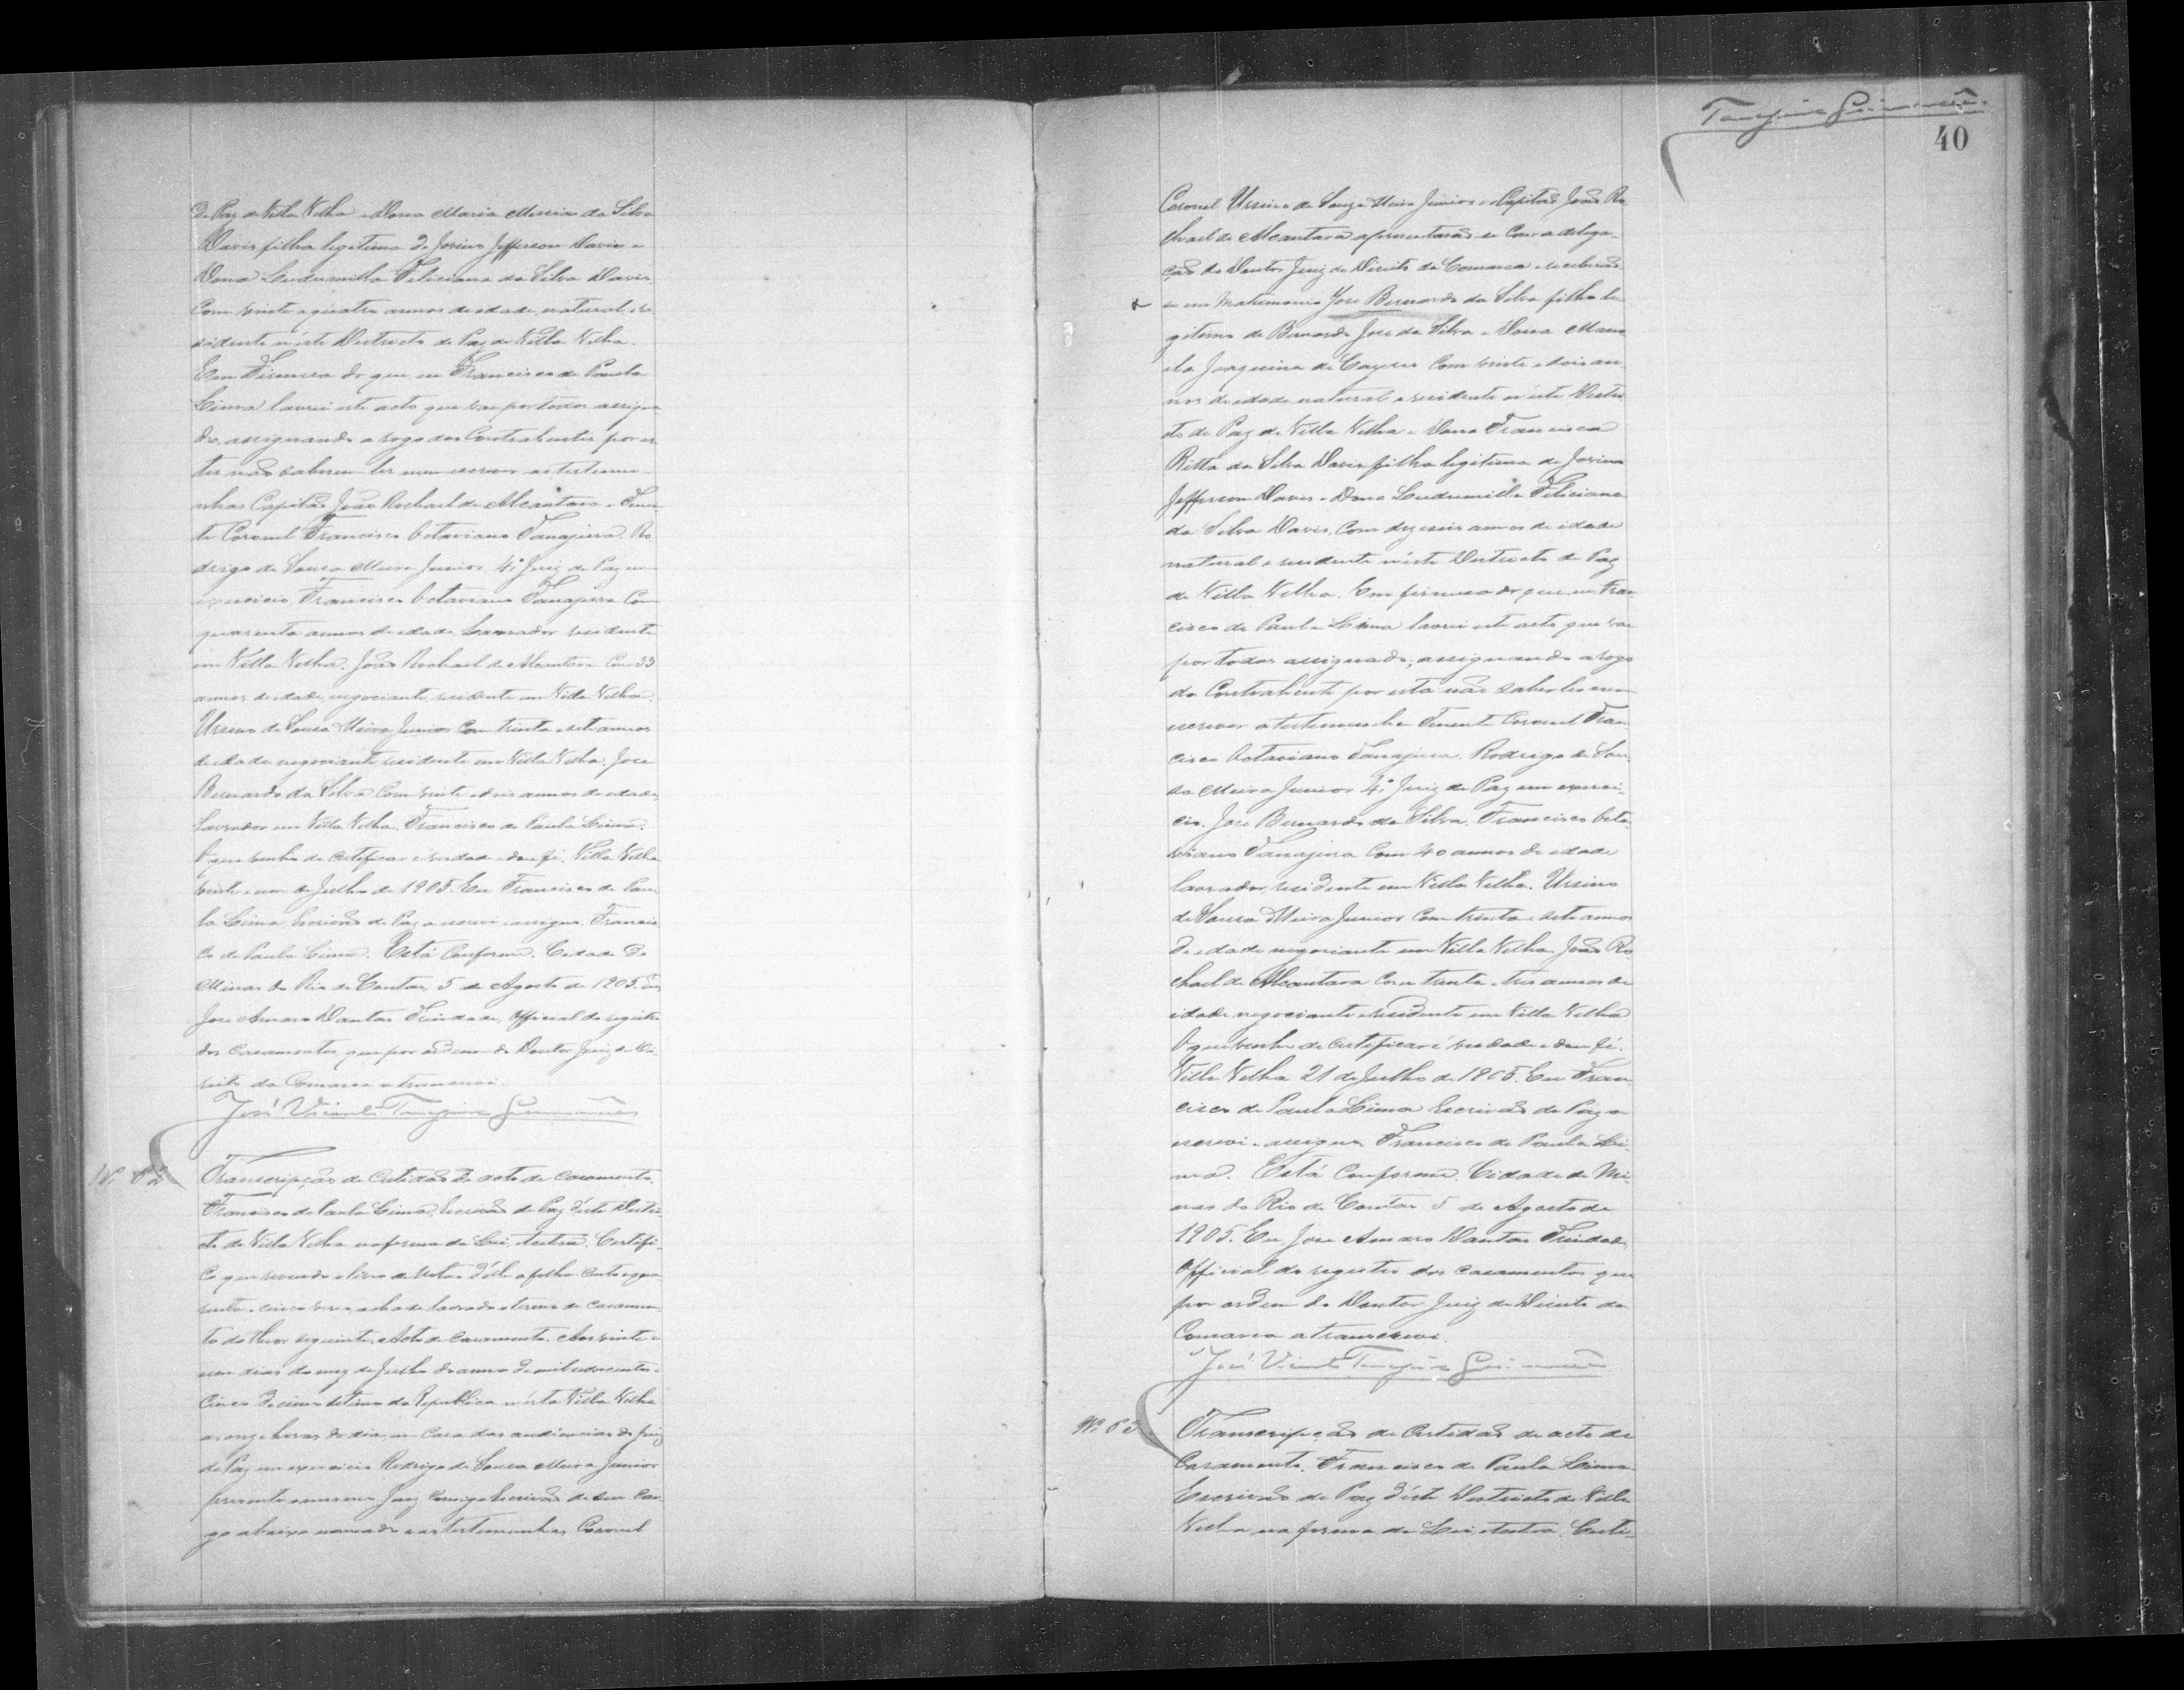 de Paz de Villa Velha e Dona Maria Messias da Silva
Davis filha legitima de Jovino Jefferson Davis e
Dona Ludumilla Feliciana da Silva Davis
Com vinte e quatro annos de idade, natural e re
sidente n'este Destricto de Paz de Villa Velha.
Em firmeza do que, eu Francisco de Paula
Lima lavrei este acto que vae por todos assigna
do, assignando a rogo dos Contrahentes por es
tes não saberem ler nem escrever as testemu-
nhas Capitão João Rochael de Alcantara e Tenen
te Coronel Francisco Octaviano Tanajura. Ro
drigo de Sousa Meira Junior, 4º Juiz de Paz em
exercicio. Francisco Octaviano Tanajura Com
quarenta annos de idade Lavrador residente
em Villa Velha. João Rochael de Alcantara Com 33
annos de idade, negociante, residente em Villa Velha.
Ursino de Sousa Meira Junior Com trinta e sete annos
de idade negociante residente em Villa Velha. Jose
Bernardo da Silva Com vinte e dois annos de idade,
Lavrador em Villa Velha. Francisco de Paula Lima.
O que venho de certificar é verdade e dou fé. Villa Velha
vinte e um de Julho de 1905. Eu Francisco de Pau
la Lima, Escrivão de Paz o escrevi e assigno. Francis
co de Paula Lima. Está Conforme. Cidade de
Minas do Rio de Contas, 5 de Agosto de 1905. Eu,
Jose Amaro Dantas Trindade, Official do registro
dos Casamentos, que por ordem do Doutor Juiz de Di
reito da Comarca a transcrevi.
José Vicente Tanajura Guimarães
Nº 62 Transcripção de Certidão de acto de casamento.
Francisco de Paula Lima, Escrivão de Paz d'este Destri-
cto de Villa Velha na forma da Lei, etcetera. Certifi-
co que revendo o livro de notas d'elle a folha cento e qua
renta e cinco verso acha-se lavrado o termo de casamen
to do theor seguinte. Acto de casamento. Aos vinte e
um dias do mez de Julho do anno de mil novecentos e
cinco decimo setimo da Republica n'esta Villa Velha
as onze horas do dia, em casa das audiencias do Juiz
de Paz em exercicio Rodrigo de Sousa Meira Junior
presente o mesmo Juiz Comigo Escrivão de seu car
go abaixo nomeado e as testemunhas Coronel
Tanajura Guimarães
40
Coronel Ursino de Souza Meira Junior e Capitão João Ro
chael de Alcantara apresentarão se Com a delega-
ção do Doutor Juiz de Direito da Comarca e receberão
se em matrimonio Jose Bernardo da Silva filho le
gitimo de Bernardo Jose da Silva e Dona Manu
ela Joaquina de Com vinte e dois an
nos de idade natural e residente n'este Destri
cto de Paz de Villa Velha e Dona Francisca
Ritta da Silva Davis filha legitima de Jovino
Jefferson Davis e Dona Ludumilla Feliciana
da Silva Davis, Com dezeseis annos de idade
natural e residente n'este Destricto de Paz
de Villa Velha. Em firmeza do que, eu Fran
cisco de Paula Lima lavrei este acto que vae
por todos assignado, assignando a rogo
da Contrahente por esta não saber ler nem
escrever a testemunha Tenente Coronel Fran
cisco Octaviano Tanajura. Rodrigo de Sou
sa Meira Junior 4º Juiz de Paz em exerci-
cio. Jose Bernardo da Silva. Francisco Octa
viano Tanajura Com 40 annos de idade
lavrador, residente em Villa Velha. Ursino
de Sousa Meira Junior Com trinta e sete annos
de idade negociante em Villa Velha. João Ro
chael de Alcantara Com trinta e tres annos de
idade negociante e residente em Villa Velha.
O que venho de certificar é verdade e dou fé.
Villa Velha 21 de Julho de 1905. Eu Fran
cisco de Paula Lima Escrivão de Paz o
escrevi e assigno. Francisco de Paula Li
ma. Está Conforme. Cidade de Mi
nas do Rio de Contas 5 de Agosto de
1905. Eu, Jose Amaro Dantas Trindade,
Official do registro dos casamentos que
por ordem do Doutor Juiz de Direito da
Comarca a transcrevi.
José Vicente Tanajura Guimarães
Nº 63 Transcripção de Certidão de acto de
Casamento. Francisco de Paula Lima
Escrivão de Paz d'este Destricto de Villa
Velha, na forma da Lei, etcetera. Certi-